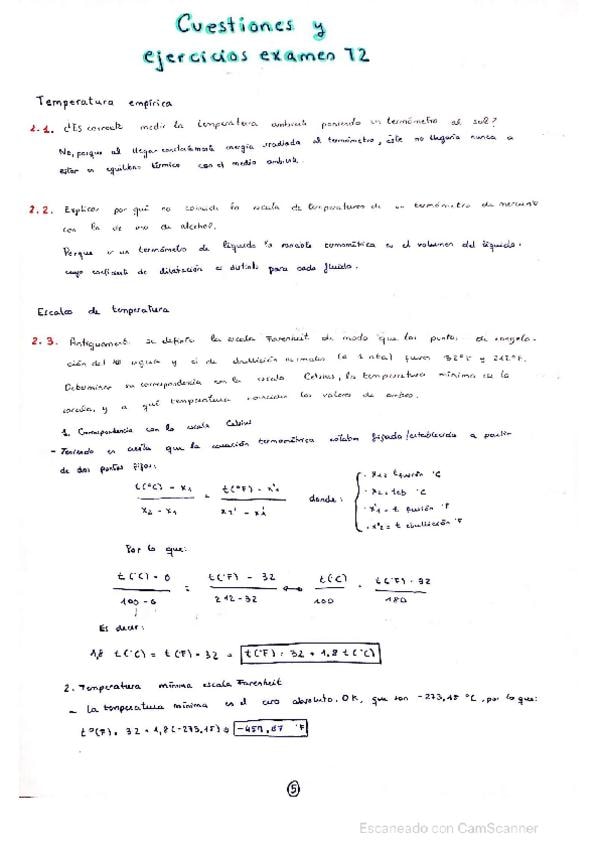 Cuestiones y
ejercicios examen T2
Temperatura empírica
2.1. ¿Es correcto medir la temperatura ambiente poniendo un termómetro al sol?
No, porque al llegar constantemente energía irradiada al termómetro, éste no llegaría nunca a
estar en equilibrio térmico con el medio ambiente.
2.2. Explicar por qué no coincide la escala de temperaturas de un termómetro de mercurio
con la de uno de alcohol.
Porque en un termómetro de líquido la variable termométrica es el volumen del líquido,
cuyo coeficiente de dilatación es distinto para cada fluido.
Escalas de temperatura
2.3. Antiguamente se definía la escala Farenheit de modo que los puntos de congela-
ción del agua y el de ebullición normales (a 1 atm) fueran 32°F y 212°F.
Determinar su correspondencia con la escala Celsius, la temperatura mínima en la
escala, y a qué temperatura coinciden los valores de ambas.
1. Correspondencia con la escala Celsius
- Teniendo en cuenta que la ecuación termométrica estaba fijada/establecida a partir
de dos puntos fijos:
t(°C) - x1 / x2 - x1 = t(°F) - x'1 / x2' - x'1 donde:
· x1 = t fusión °C
· x2 = teb °C
· x'1 = t fusión °F
· x'2 = t ebullición °F
Por lo que:
t(°C) - 0 / 100 - 0 = t(°F) - 32 / 212 - 32 ↔ t(°C) / 100 = t(°F) - 32 / 180
Es decir:
1,8 t(°C) = t(°F) - 32 → t(°F) = 32 + 1,8 t(°C)
2. Temperatura mínima escala Farenheit
- La temperatura mínima es el cero absoluto, 0K, que son -273,15 °C, por lo que:
t°(F) = 32 + 1,8(-273,15) = -459,67 °F
5
Escaneado con CamScanner